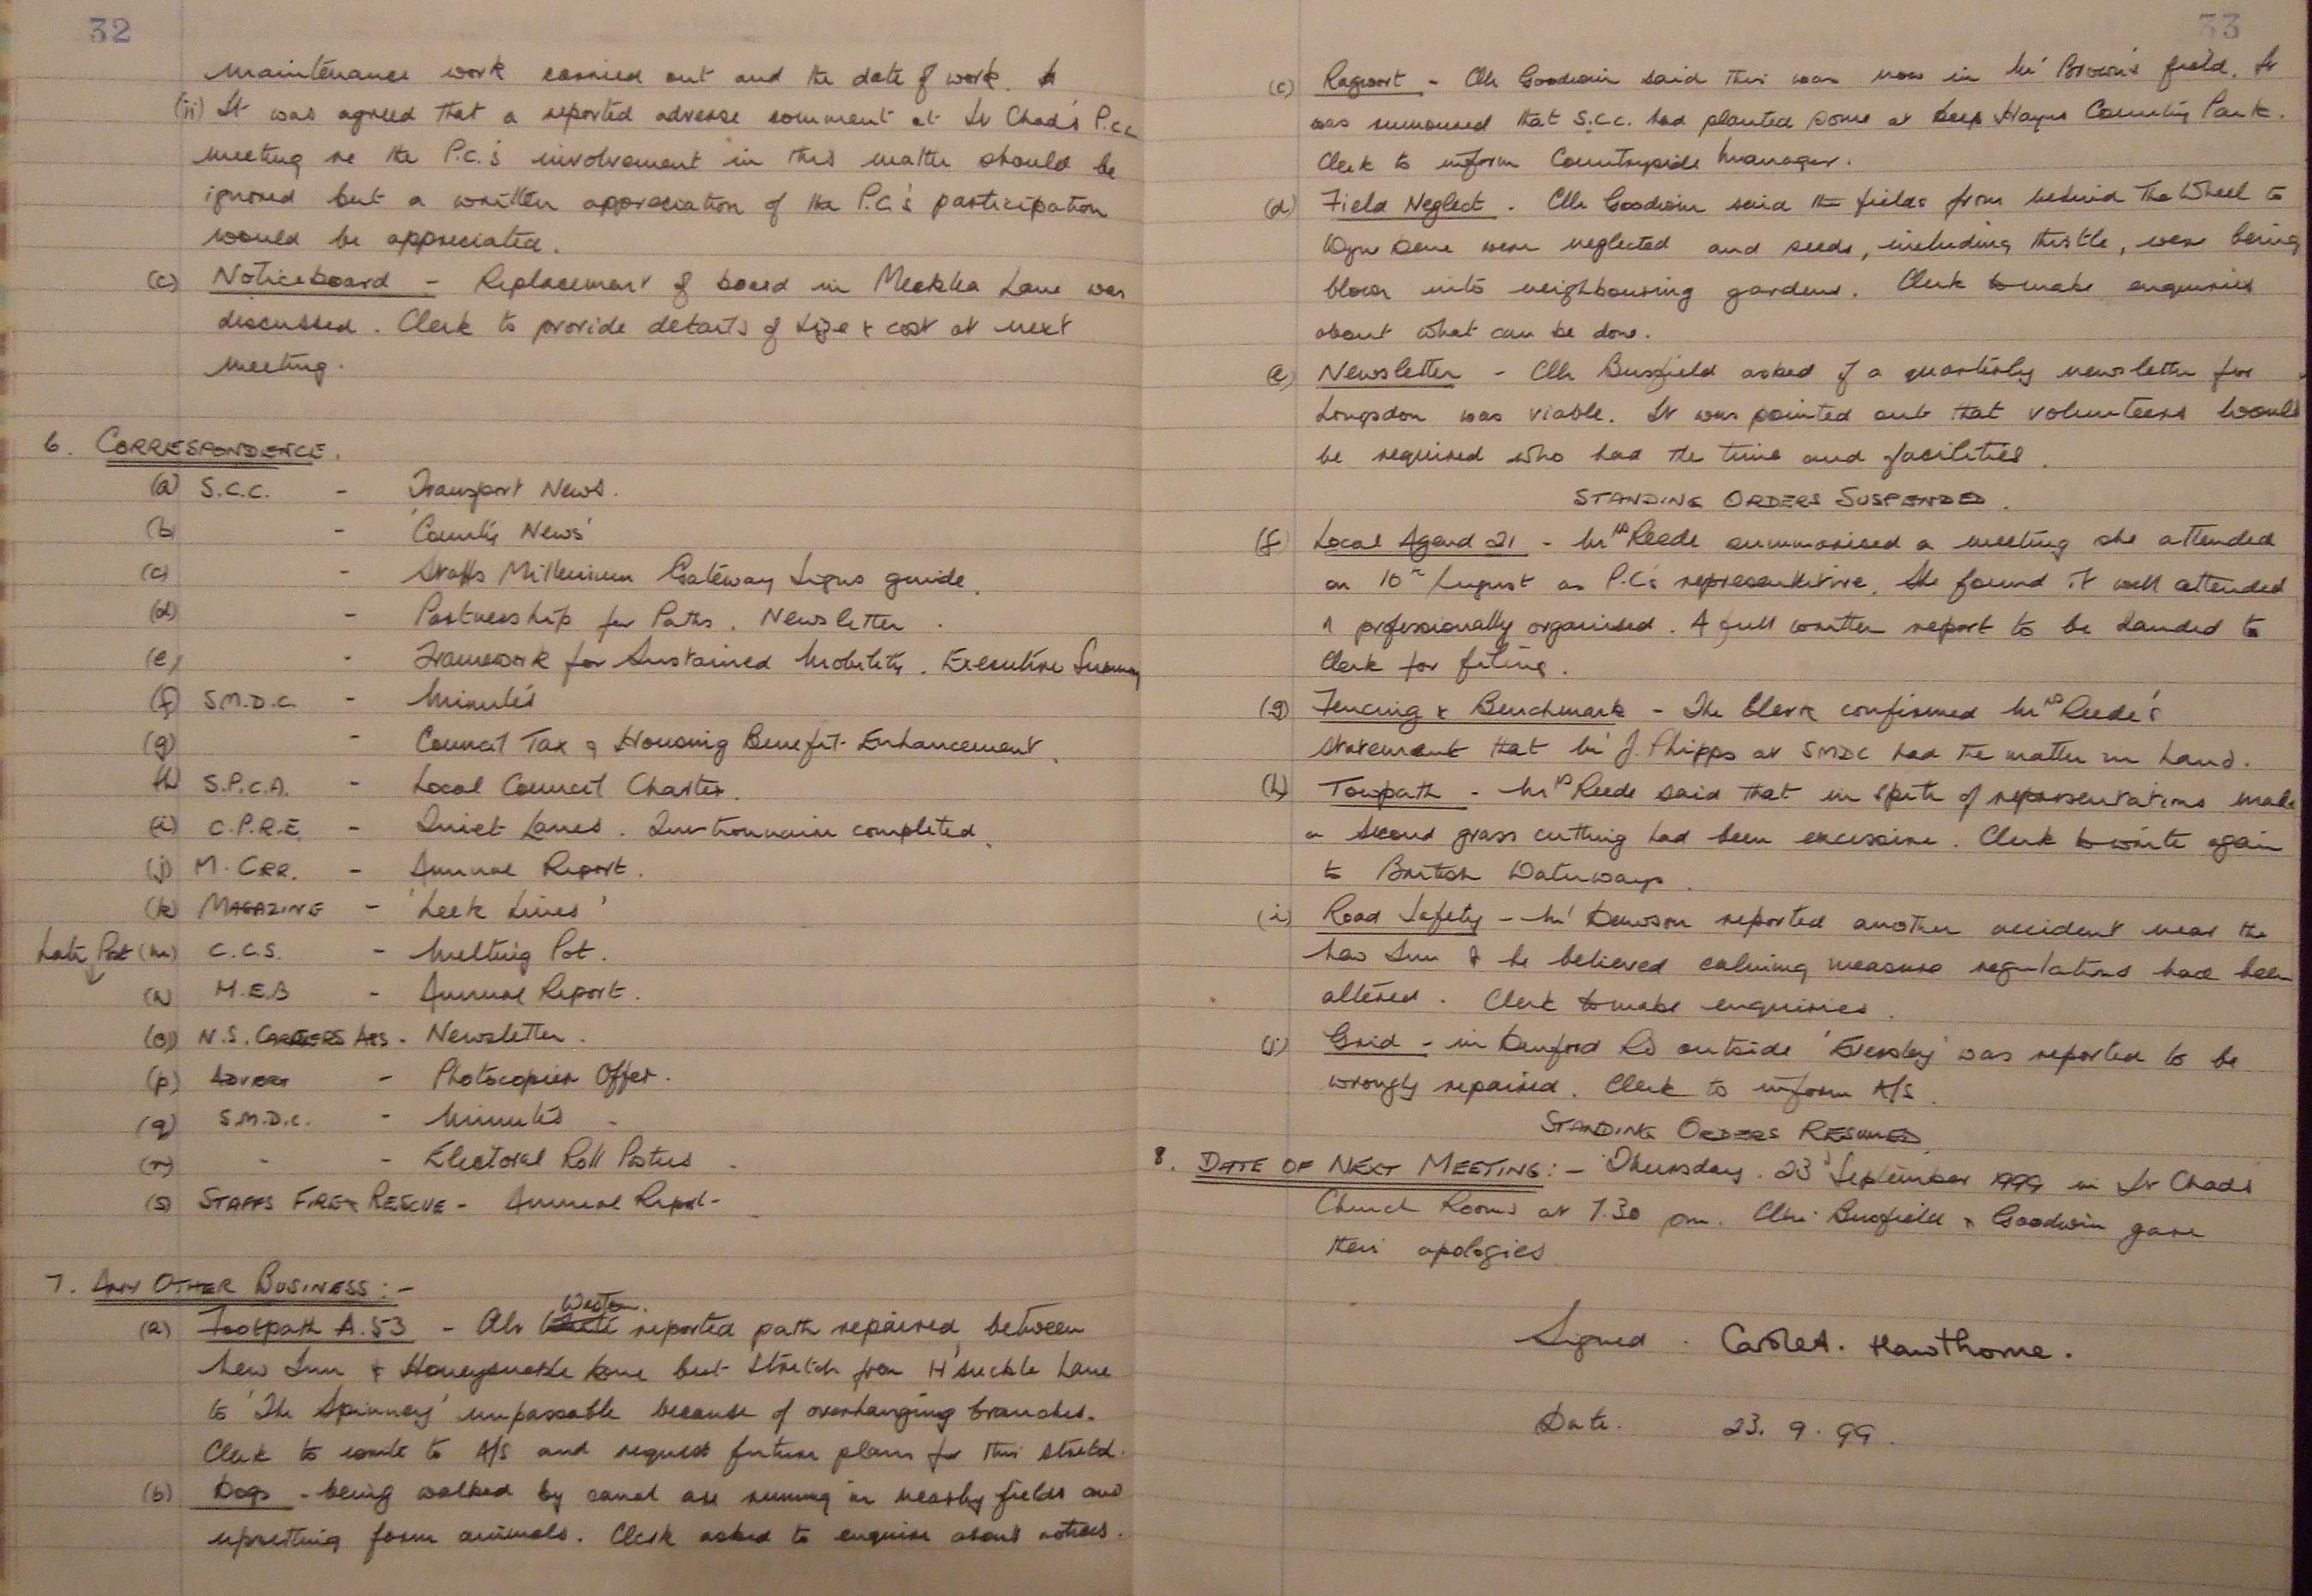 32
maintenance work carried out and the date of work.
(ii) It was agreed that a reported adverse comment at St Chad's P.C.C.
meeting re the P.C.'s involvement in this matter should be
ignored but a written appreciation of the P.C.'s participation
would be appreciated.
(c) Noticeboard - Replacement of board in Mollatts Lane was
discussed. Clerk to provide details of size & cost at next
meeting.
6. CORRESPONDENCE.
(a) S.C.C. - Transport News.
(b) - 'County News'
(c) - Staffs Millenium Gateway Signs guide.
(d) - Partnership for Paths. Newsletter.
(e) - Framework for Sustained Mobility. Executive Summary
(f) S.M.D.C. - Minutes
(g) - Council Tax & Housing Benefit Enhancement.
(h) S.P.C.A. - Local Council Charter.
(i) C.P.R.E. - Quiet Lanes. Questionnaire completed.
(j) M. CRR. - Annual Report.
(k) MAGAZINE - 'Leek Lines'
Late Post (m) C.C.S. - Melting Pot.
(n) M.E.B - Annual Report.
(o) N.S. CARERS ASS. - Newsletter.
(p) ADVERT - Photocopier Offer.
(q) S.M.D.C. - Minutes
(r) - - Electoral Roll Posters
(s) STAFFS FIRE & RESCUE - Annual Report
7. ANY OTHER BUSINESS:-
Weston.
(a) Footpath A.53 - Cllr reported path repaired, between
New Inn & Honeysuckle Lane but stretch from H'suckle Lane
to 'The Spinney' unpassable because of overhanging branches.
Clerk to write to A/S and request future plans for this stretch.
(b) Dogs - being walked by canal are running in nearby fields and
upsetting farm animals. Clerk asked to enquire about notices.
33
(c) Ragwort - Cllr Goodwin said this was now in Mr Brown's field. It
was rumoured that S.C.C. had planted some at Deep Hayes Country Park.
Clerk to inform Countryside Manager.
(d) Field Neglect. Cllr Goodwin said the fields from behind The Wheel to
Wyn Dene were neglected and seeds, including thistle, were being
blown into neighbouring gardens. Clerk to make enquiries
about what can be done.
(e) Newsletter - Cllr Busfield asked if a quarterly newsletter for
Longsdon was viable. It was pointed out that volunteers would
be required who had the time and facilities.
STANDING ORDERS SUSPENDED.
(f) Local Agend 21 - Mrs Reede summarised a meeting she attended
on 10th August as P.C.'s representative. She found it well attended
& professionally organised. A full written report to be handed to
Clerk for filing.
(g) Fencing & Benchmark - The Clerk confirmed Mrs Reede's
statement that Mr J. Phipps at SMDC had the matter in hand.
(h) Towpath - Mrs Reede said that in spite of representations made
a second grass cutting had been excessive. Clerk to write again
to British Waterways.
(i) Road Safety - Mr Dawson reported another accident near the
New Inn & he believed calming measure regulations had been
altered. Clerk to make enquiries.
(j) Grid - in Denford Rd outside 'Eversley' was reported to be
wrongly repaired. Clerk to inform A/S.
STANDING ORDERS RESUMED.
8. DATE OF NEXT MEETING:- Thursday. 23rd September 1999 in St Chads
Church Rooms at 7.30 pm. Cllrs Busfield & Goodwin gave
their apologies
Signed. Carole A. Hawthorne.
Date. 23. 9. 99.